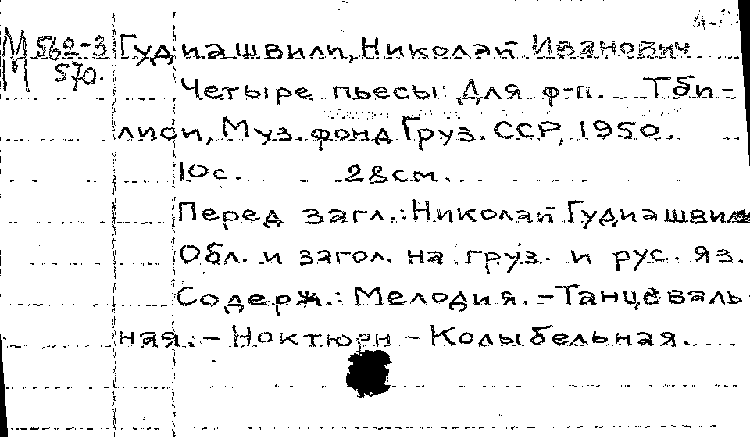 М 562-3
570.
Гудиашвили, Николай Иванович
Четыре пьесы: Для ф-п. Тби-
лиси, Муз. фонд Груз. ССР, 1950.
10с. 28см.
Перед загл.: Николай Гудиашвили
Обл. и загол. на груз. и рус. яз.
Содерж.: Мелодия. – Танцеваль-
ная. – Ноктюрн – Колыбельная.